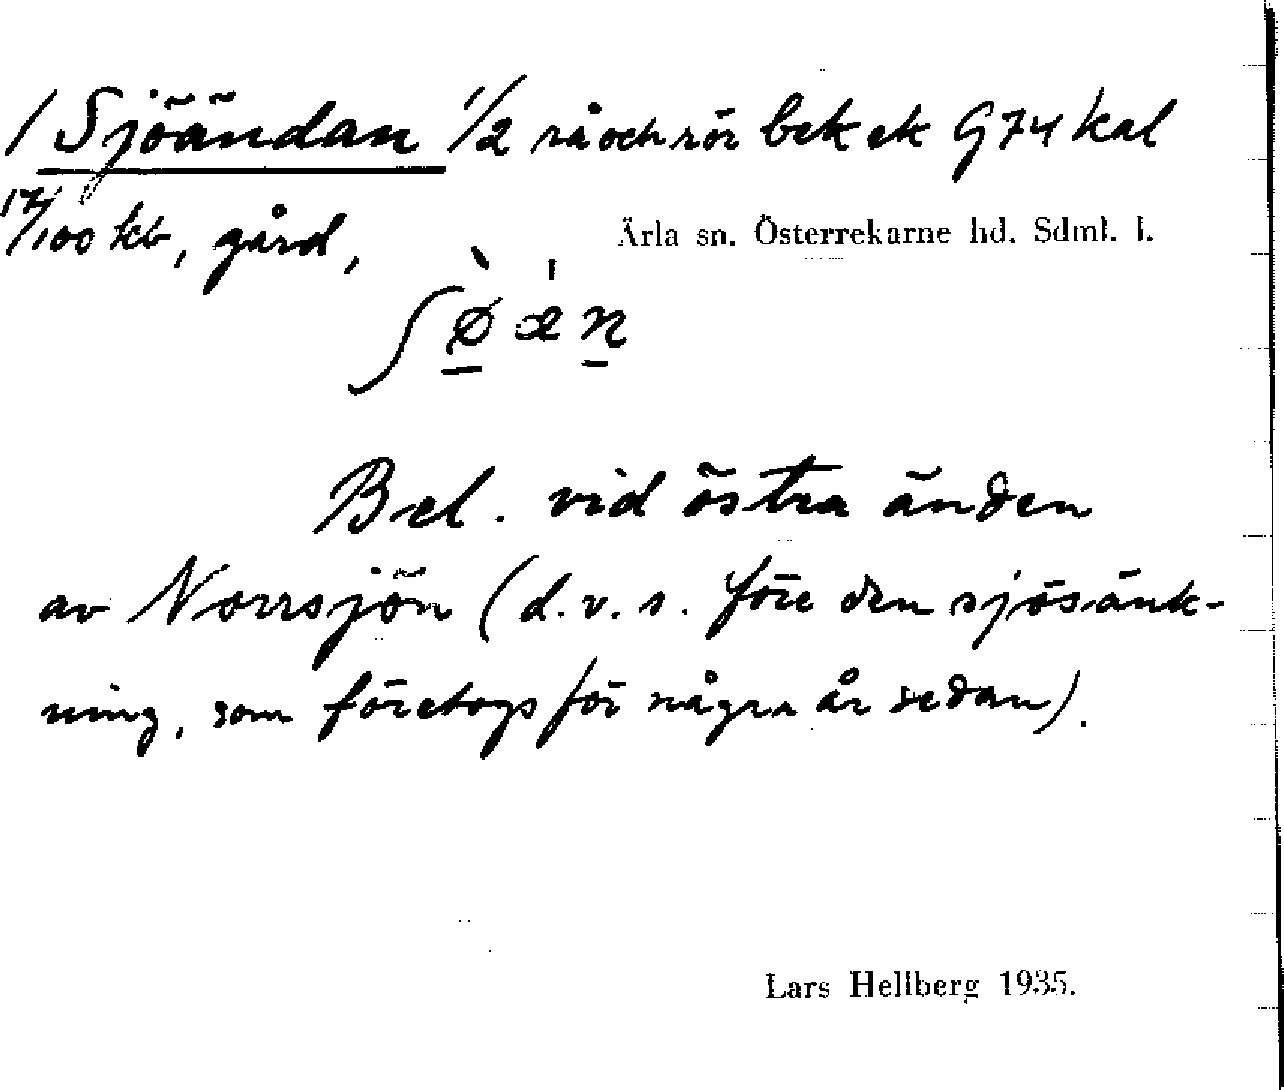 / Sjöändan 1/2 rå och rör bek ek G 74 kal
17/100 kb, gård,
Ärla sn. Österrekarne hd. Sdml. l.
ʃø̀æ'n
Bel. vid östra änden
av Norrsjön (d.v.s. före den sjösänk-
ning, som företogs för några år sedan).
Lars Hellberg 1935.